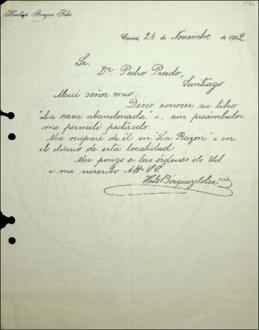 Humberto Borquez Solar
24 de Noviembre de 1912
Sr.
Dn Pedro Prado,
Santiago
Mui señor mio:
Deseo conocer su libro
"La casa abandonada" i, sin preámbulos
me permito pedírselo.
Me ocuparé de él en "La Razon" i en
el diario de esta localidad.
Me pongo a las órdenes de Ud
i me suscribo Affo SS.
Hto Borquez Solar